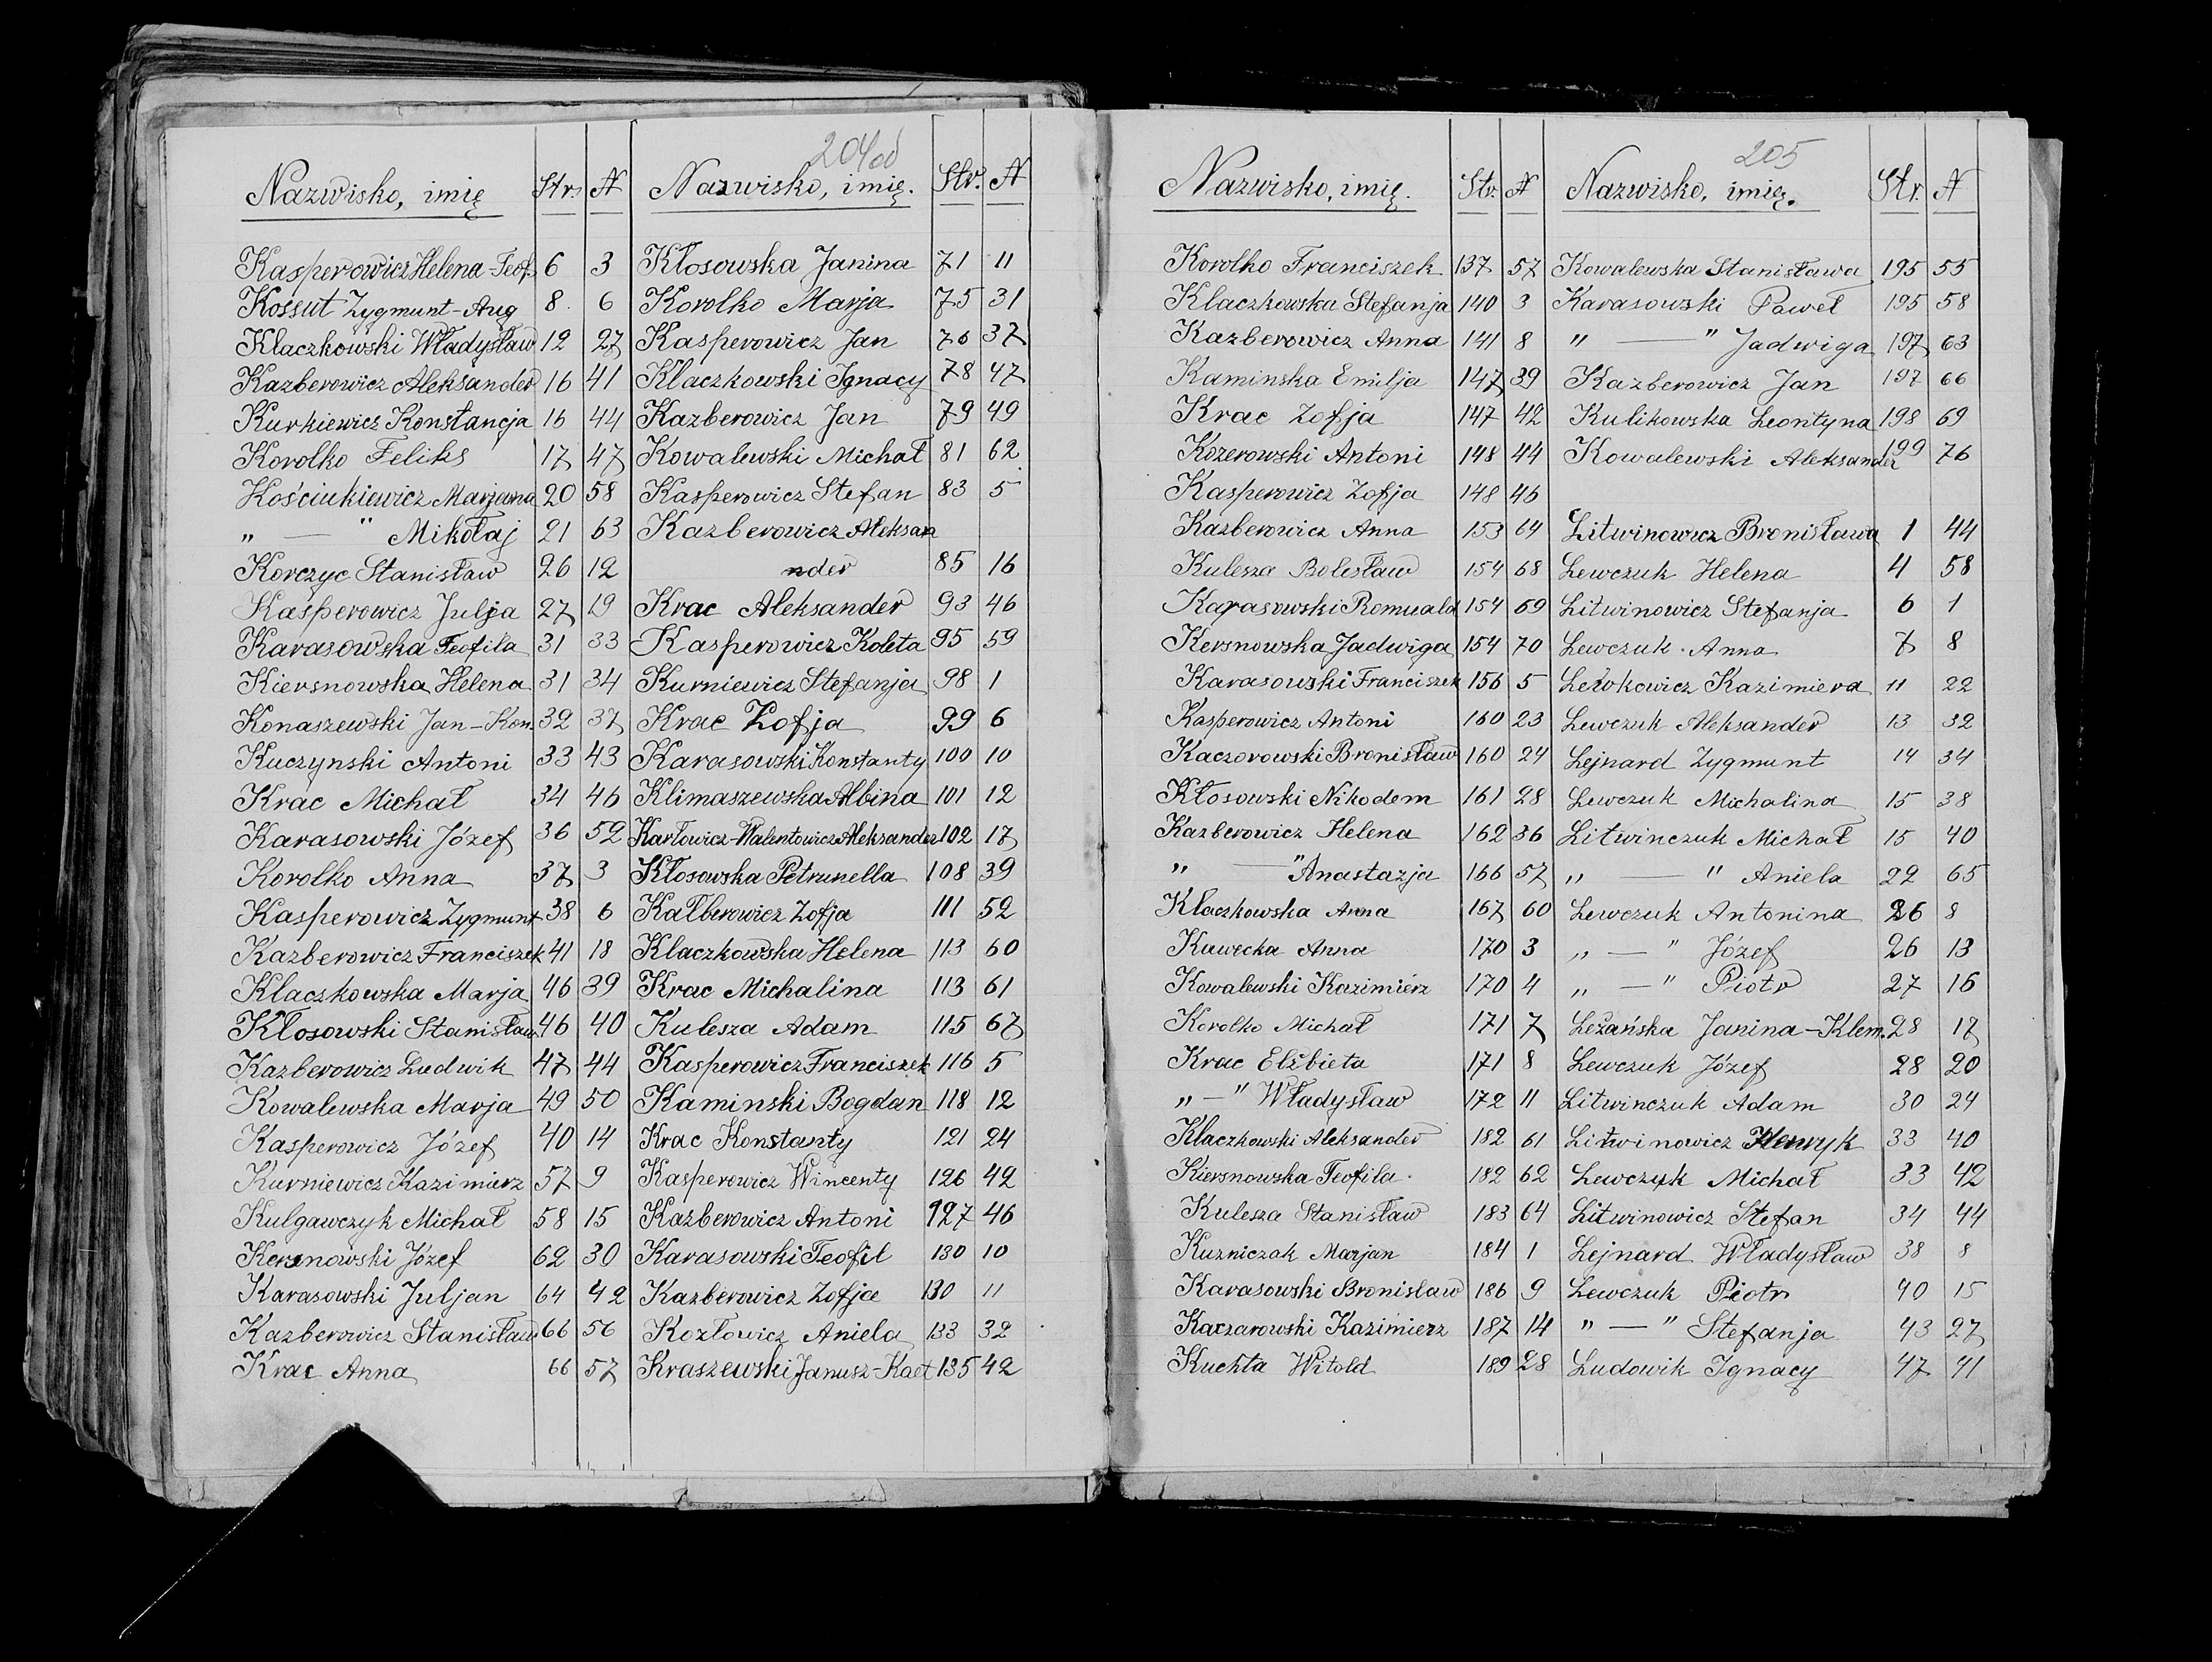 204 od
Nazwisko, imię Str. N
Kasperowicz Helena-Teof. 6 3
Kossut Zygmunt-Aug 8 6
Klaczkowski Władysław 12 27
Kazberowicz Aleksander 16 41
Kurkiewicz Konstancja 16 44
Korolko Feliks 17 47
Kościukiewicz Marjana 20 58
" — " Mikołaj 21 63
Korczyc Stanisław 26 12
Kasperowicz Julja 27 19
Karasowska Teofila 31 33
Kiersnowska Helena 31 34
Konaszewski Jan-Kon. 32 37
Kuczynski Antoni 33 43
Krac Michał 34 46
Karasowski Józef 36 52
Korolko Anna 37 3
Kasperowicz Zygmunt 38 6
Kazberowicz Franciszek 41 18
Klaczkowska Marja 46 39
Kłosowski Stanisław 46 40
Kazberowicz Ludwik 47 44
Kowalewska Marja 49 50
Kasperowicz Józef 40 14
Kurniewicz Kazimierz 57 9
Kulgawczyk Michał 58 15
Kersnowski Józef 62 30
Karasowski Juljan 64 42
Kazberowicz Stanisław 66 56
Krac Anna 66 57
Nazwisko, imię. Str. N
Kłosowska Janina 71 11
Korolko Marja 75 31
Kasperowicz Jan 76 37
Klaczkowski Ignacy 78 47
Kazberowicz Jan 79 49
Kowalewski Michał 81 62
Kasperowicz Stefan 83 5
Kazberowicz Aleksan
nder 85 16
Krac Aleksander 93 46
Kasperowicz Koleta 95 59
Kurniewicz Stefanja 98 1
Krac Zofja 99 6
Karasowski Konstanty 100 10
Klimaszewska Albina 101 12
Karłowicz-Walentowicz Aleksander 102 17
Kłosowska Petrunella 108 39
Kałberowicz Zofja 111 52
Klaczkowska Helena 113 60
Krac Michalina 113 61
Kulesza Adam 115 67
Kasperowicz Franciszek 116 5
Kaminski Bogdan 118 12
Krac Konstanty 121 24
Kasperowicz Wincenty 126 42
Kazberowicz Antoni 127 46
Karasowski Teofil 130 10
Kazberowicz Zofja 130 11
Kozłowicz Aniela 133 32
Kraszewski Janusz-Kaet 135 42
205
Nazwisko, imię. Str. N
Korolko Franciszek 137 57
Klaczkowska Stefanja 140 3
Kazberowicz Anna 141 8
Kaminska Emilja 147 39
Krac Zofja 147 42
Kozerowski Antoni 148 44
Kasperowicz Zofja 148 46
Kazberowicz Anna 153 64
Kulesza Bolesław 154 68
Karasowski Romuald 154 69
Kersnowska Jadwiga 154 70
Karasowski Franciszek 156 5
Kasperowicz Antoni 160 23
Kaczorowski Bronisław 160 24
Kłosowski Nikodem 161 28
Kazberowicz Helena 162 36
" — " Anastazja 166 57
Klaczkowska Anna 167 60
Kawecka Anna 170 3
Kowalewski Kazimierz 170 4
Korolko Michał 171 7
Krac Elżbieta 171 8
" — " Władysław 172 11
Klaczkowski Aleksander 182 61
Kiersnowska Teofila. 182 62
Kulesza Stanisław 183 64
Kuzniczak Marjan 184 1
Karasowski Bronisław 186 9
Kaczarowski Kazimierz 187 14
Kuchta Witold 189 28
Nazwisko, imię. Str. N
Kowalewska Stanisława 195 55
Karasowski Paweł 195 58
" — " Jadwiga 197 63
Kazberowicz Jan 197 66
Kulikowska Leontyna 198 69
Kowalewski Aleksander 199 76
Litwinowicz Bronisława 1 44
Lewczuk Helena 4 58
Litwinowicz Stefanja 6 1
Lewczuk Anna 7 8
Lewkowicz Kazimiera 11 22
Lewczuk Aleksander 13 32
Lejnard Zygmunt 14 34
Lewczuk Michalina 15 38
Litwinczuk Michał 15 40
" — " Aniela 22 65
Lewczuk Antonina 26 8
" — " Józef 26 13
" — " Piotr 27 16
Leżańska Janina-Klem. 28 17
Lewczuk Józef 28 20
Litwinczuk Adam 30 24
Litwinowicz Henryk 33 40
Lewczyk Michał 33 42
Litwinowicz Stefan 34 44
Lejnard Władysław 38 8
Lewczuk Piotr 40 15
" — " Stefanja 43 27
Ludowik Ignacy 47 41